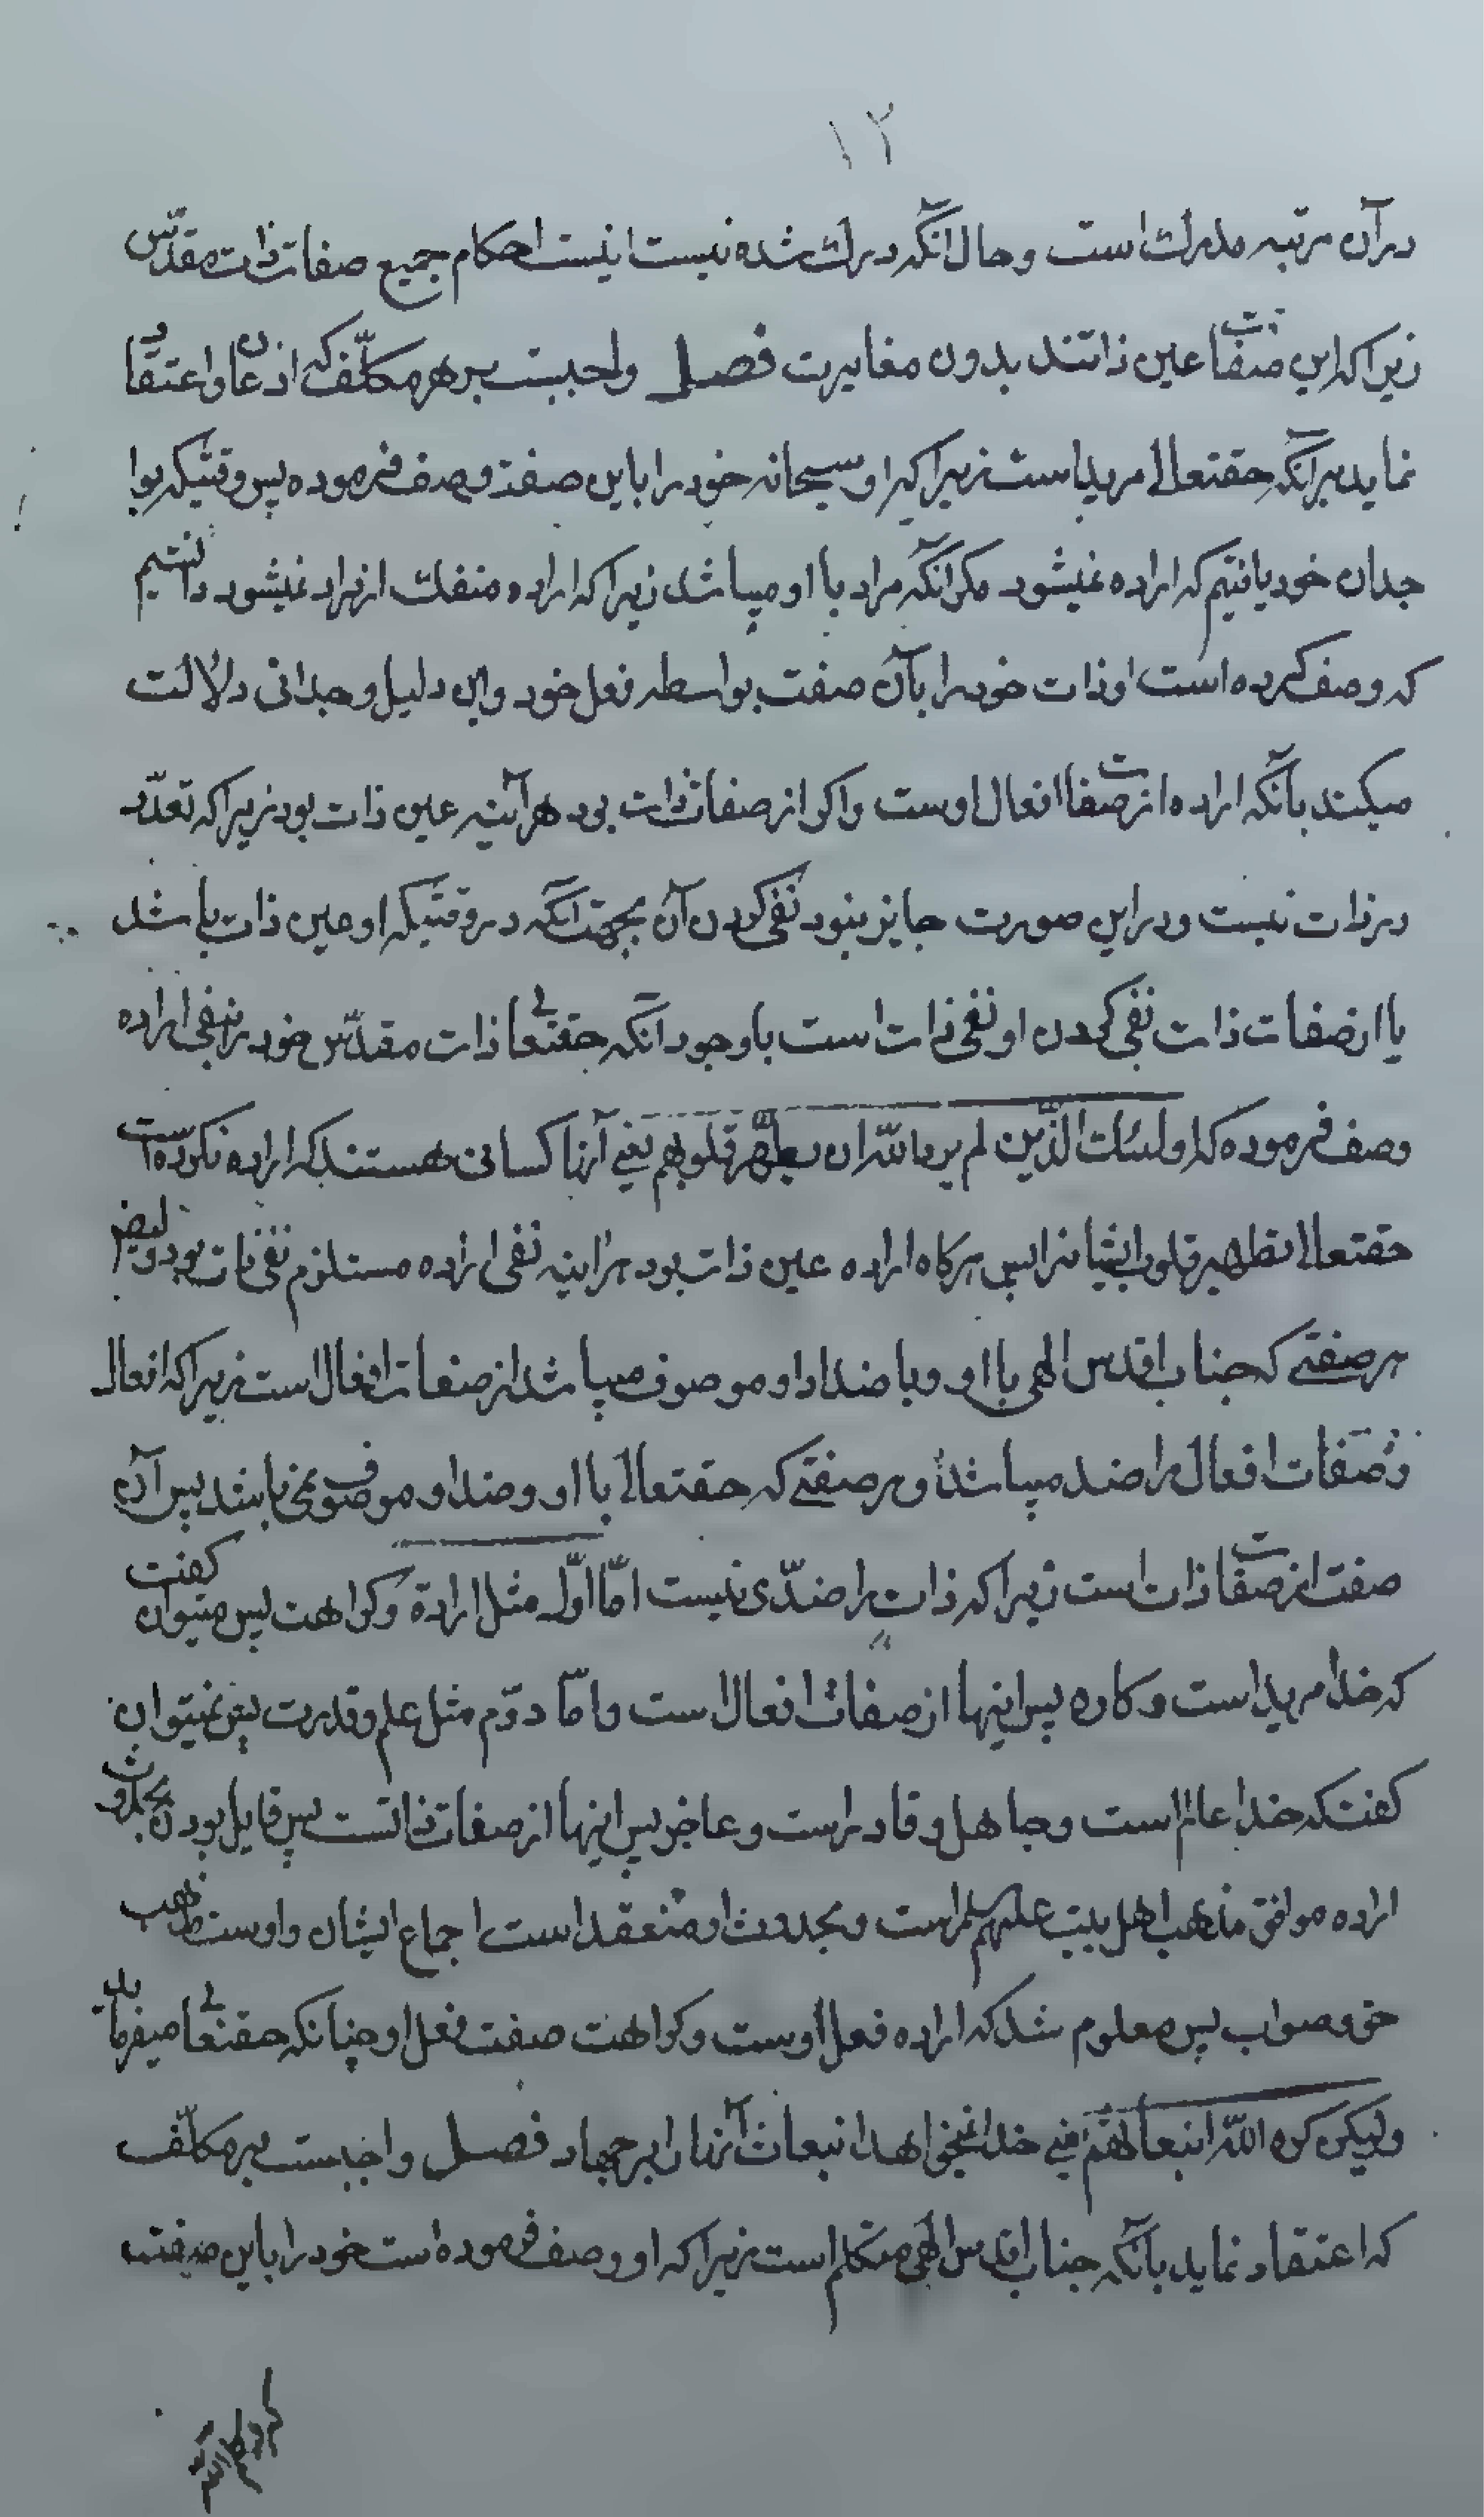 ١٢
در آن مرتبه مدرك است وحال آنكه درك شده نيست اينست احكام جميع صفات ذات مقدّس
زيرا كه اين صفات عين ذاتند بدون مغايرت فصل واجبست بر هر مكلّف كه اذعان واعتقاد
نمايد برآنكه حقتعالى مريد است زيرا كه او سبحانه خود را باين صفة وصف فرموده پس وقتيكه بوا
جدان خود يافتيم كه اراده نميشود مكر آنكه مراد با او ميباشد زيرا كه اراده منفك از مراد نميشود دانستيم
كه وصف كرده است او ذات خود را بآن صفت بواسطه فعل خود واين دليل وجدانى دلالت
ميكند بآنكه اراده از صفات افعال اوست واكر از صفات ذات بود هرآئينه عين ذات بود زيرا كه تعدّد
در ذات نيست ودر اين صورت جايز نبود نفى كردن آن بجهت آنكه در وقتيكه او عين ذات باشد
يا از صفات ذات نفى كردن او نفى ذات است با وجود آنكه حقتعالى ذات مقدّس خود را بنفى اراده
وصف فرموده كه اولئك الذّين لم يرد اللّه ان يطهّر قلوبهم يعنى آنها كسانى هستند كه اراده نكرده است
حقتعالا تطهير قلوب ايشانرا پس هركاه اراده عين ذات بود هرآينه نفى اراده مستلزم نفى ذات بود وايضا
هر صفتى كه جناب اقدس الهى با او وبا ضداد او موصوف ميباشد از صفات افعال است زيرا كه افعال
وصفات افعال را ضد ميباشد وهر صفتى كه حقتعالى با او وضد او موصوف نميباشد پس آن
صفت از صفات ذات است زيرا كه ذات را ضدّى نيست امّا اوّل مثل ارادة وكراهت پس ميتوان كفت
كه خدا مريد است وكاره پس اينها از صفات افعال است وامّا دوّم مثل علم وقدرت پس نميتوان
كفت كه خدا عالم است وجاهل وقادر است وعاجز پس اينها از صفات ذاتست پس قايل بودن بحدوث
اراده موافق مذهب اهل بيت عليهم السلام است وبحدوث او منعقد است اجماع ايشان واوست مذهب
حق وصواب پس معلوم شد كه اراده فعل اوست وكراهت صفت فعل او چنانكه حقتعالى ميفرمايد
وليكن كره اللّه انبعاثهم يعنى خدا نميخواهد انبعاث آنها را بر جهاد فصل واجبست بر مكلّف
كه اعتقاد نمايد بآنكه جناب اقدس الهى متكلم است زيرا كه او وصف فرموده است خود را باين صفت